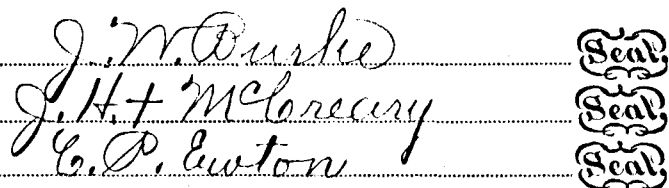 J. W. Burke Seal
J. H. + McCreary Seal
C. P. Ewton Seal